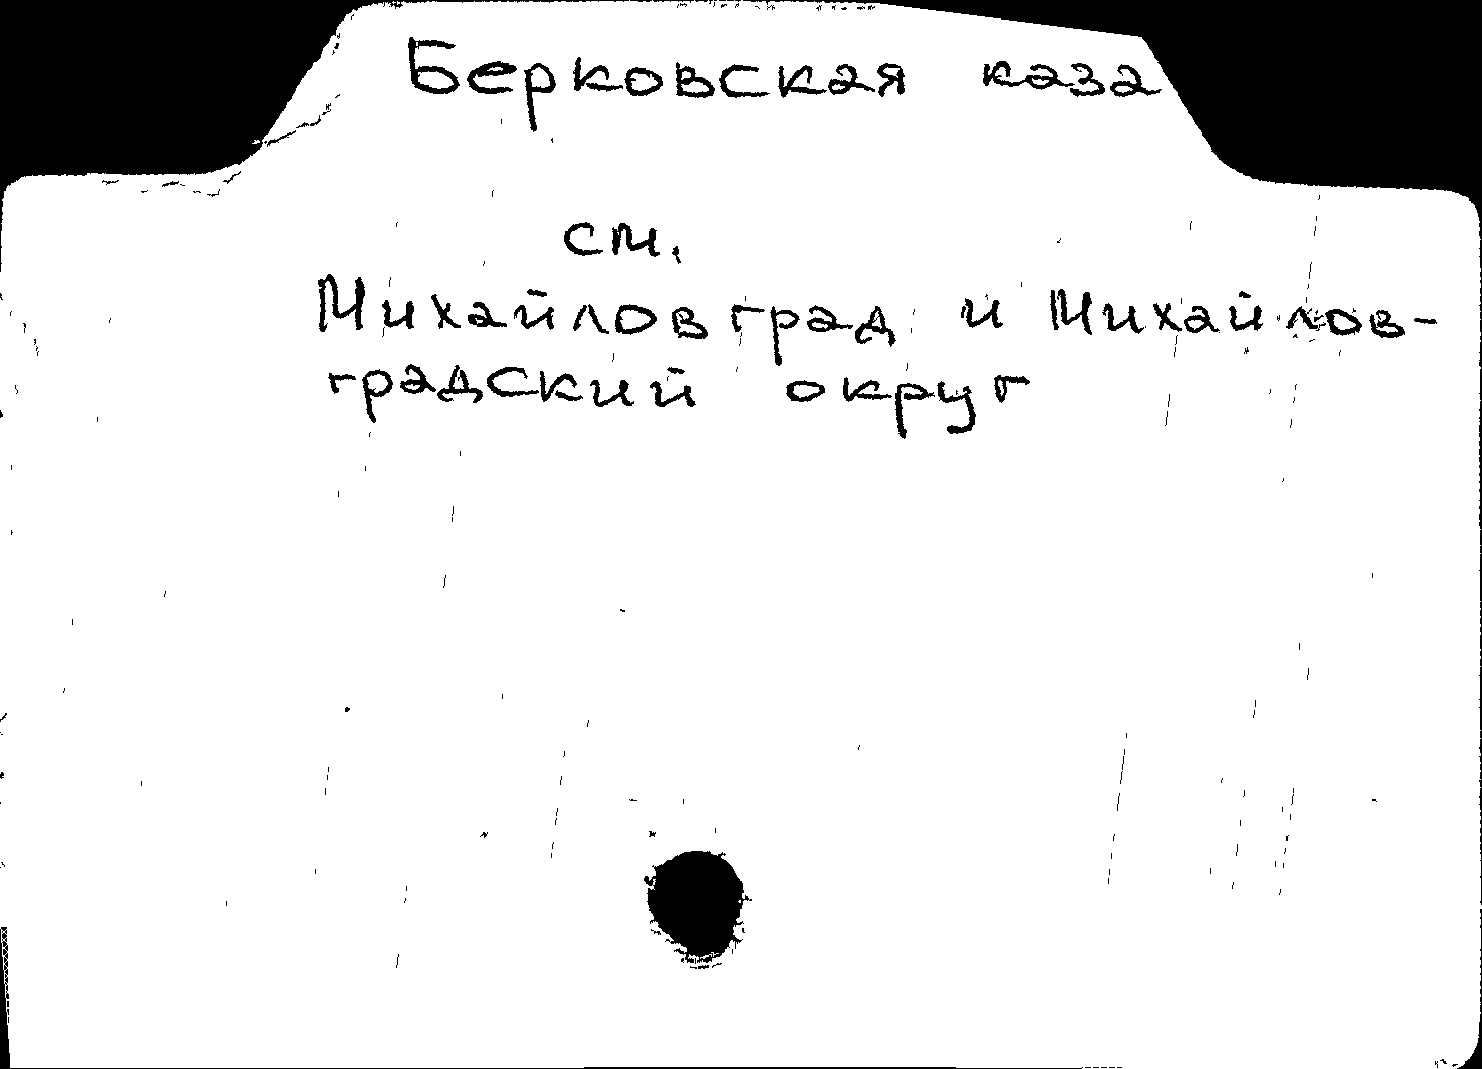 Берковская каза
см.
Михайловград и Михайлов-
градский округ